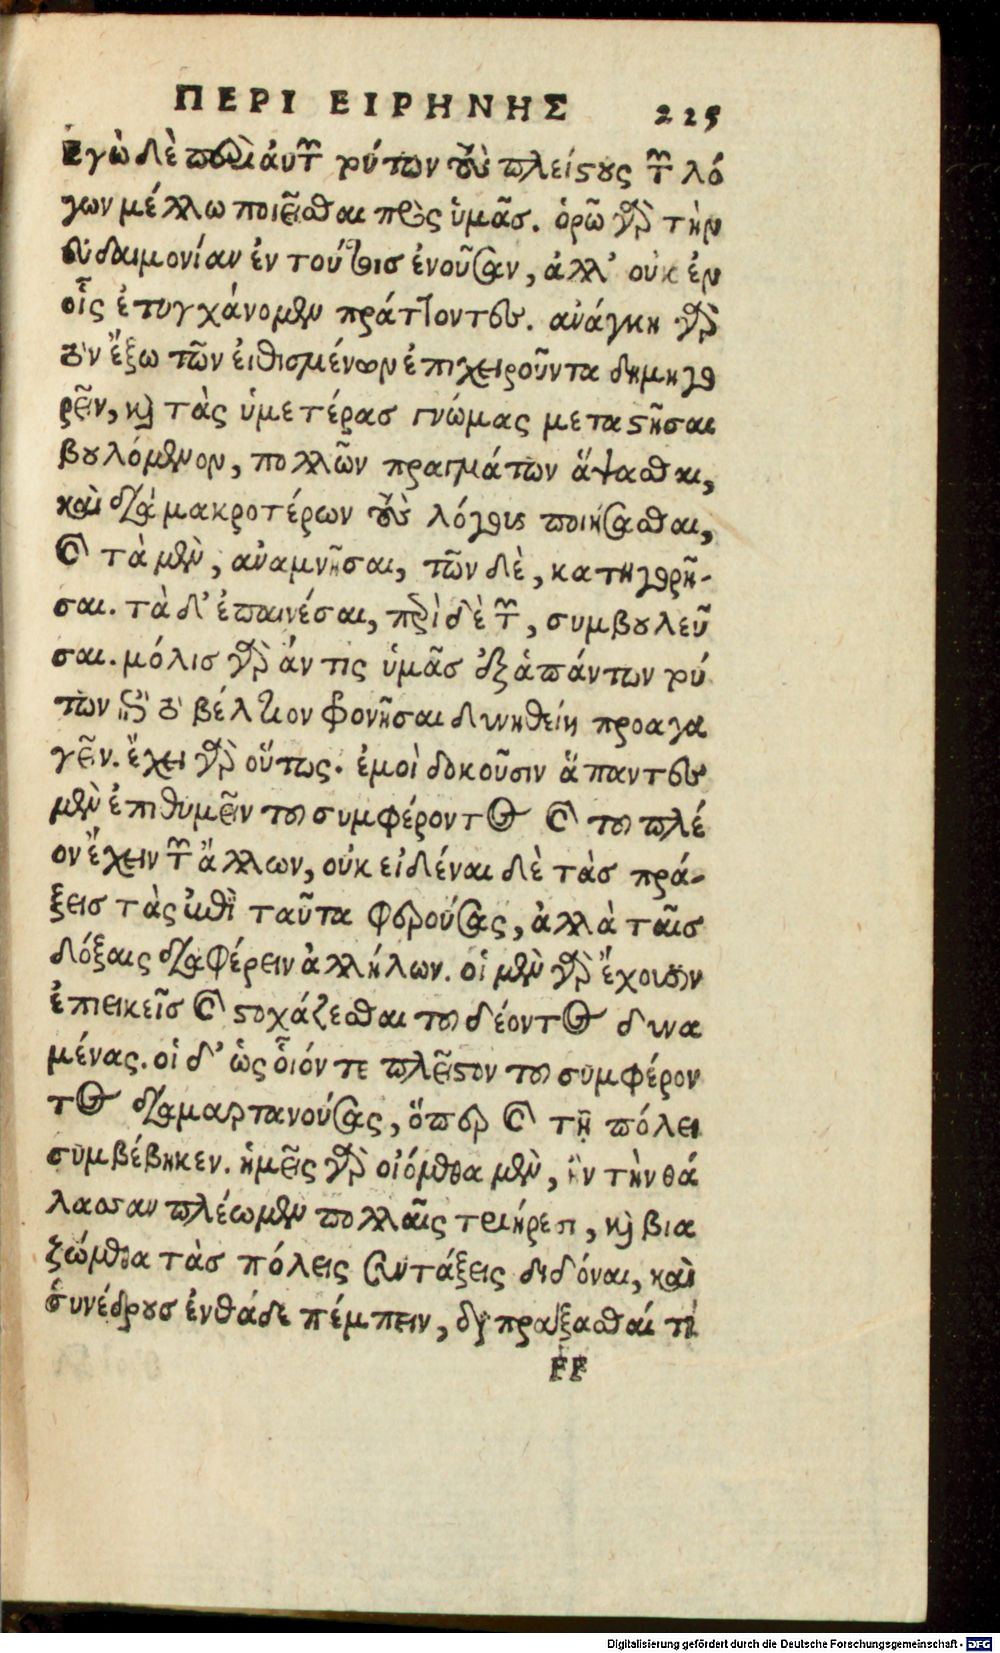 ΠΕΡΙ ΕΙΡΗΝΗΣ 225
Εγὼ δὲ περὶ αὐτῶν τούτων τοὺς πλείστους τῶν λό
γων μέλλω ποιεῖσθαι πρὸς ὑμᾶς. ὁρῶ γὰρ τὴν
εὐδαιμονίαν ἐν τούτοις ἐνοῦσαν, ἀλλ’ οὐκ ἐν
οἷς ἐτυγχάνομεν πράττοντες. ἀνάγκη γὰρ
τὸν ἔξω τῶν εἰθισμένων ἐπιχειροῦντα δημηγο
ρεῖν, καὶ τὰς ὑμετέρας γνώμας μεταστῆσαι
βουλόμενον, πολλῶν πραγμάτων ἅψασθαι,
καὶ διὰ μακροτέρων τοὺς λόγους ποιήσασθαι,
καὶ τὰ μὲν, ἀναμνῆσαι, τῶν δὲ, κατηγορῆ-
σαι. τὰ δ’ ἐπαινέσαι, περὶ δὲ τῶν, συμβουλεῦ
σαι. μόλις γὰρ ἄν τις ὑμᾶς ἐξ ἁπάντων τού
των ἐπὶ τὸ βέλτιον φρονῆσαι δυνηθείη προαγα
γεῖν. ἔχει γὰρ οὕτως. ἐμοὶ δοκοῦσιν ἅπαντες
μὲν ἐπιθυμεῖν τοῦ συμφέροντος καὶ τοῦ πλέ
ον ἔχειν τῶν ἄλλων, οὐκ εἰδέναι δὲ τὰς πρά-
ξεις τὰς ἐπὶ ταῦτα φερούσας, ἀλλὰ ταῖς
δόξαις διαφέρειν ἀλλήλων. οἱ μὲν γὰρ ἔχουσιν
ἐπιεικεῖς καὶ στοχάζεσθαι τοῦ δέοντος δυνα
μένας. οἱ δ’ ὡς οἷόν τε πλεῖστον τοῦ συμφέρον
τος διαμαρτανούσας, ὅπερ καὶ τῇ πόλει
συμβέβηκεν. ἡμεῖς γὰρ οἰόμεθα μὲν, ἢν τὴν θά
λασσαν πλέωμεν πολλαῖς τριήρεσι, καὶ βια
ζώμεθα τὰς πόλεις συντάξεις διδόναι, καὶ
συνέδρους ἐνθάδε πέμπειν, διαπράξασθαί τι
FF
Digitalisierung gefördert durch die Deutsche Forschungsgemeinschaft - DFG